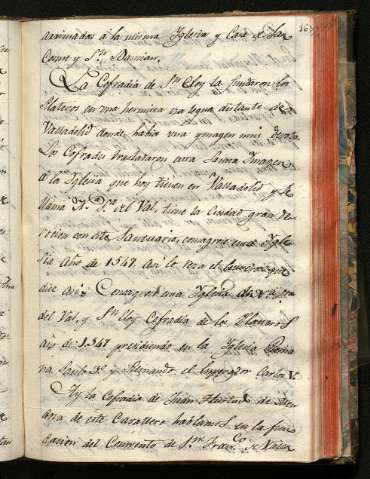 arrimados á la misma Iglesia y Casa de San
Cosme y Sn. Damian.
La Cofradia de Sn. Eloy la fundaron los
Plateros en una hermita una legua distante de
Valladolid donde habia una ymagen mui devota.
Los Cofrades trasladaron esta Santa Imagen
á la Iglesia que hoy tienen en Valladolid y se
llama Na. Sa. del Val, tiene la Ciudad gran de
vocion con este Santuario, consagrose esta Igle
sia año de 1547. asi lo reza el letrero que
dice asi: Consagrose una Iglesia de
del Val, y Sn. Eloy Cofradia de los Plateros
año de 1547 presidiendo en la Iglesia Roma
na Paulo 3o. y Reynando el Emperador Carlos V.
Ay la Cofradia de Juan Hurtado de
de este Caballero hablamos en la fun
dacion del Convento de Sn. Franco. de Valla